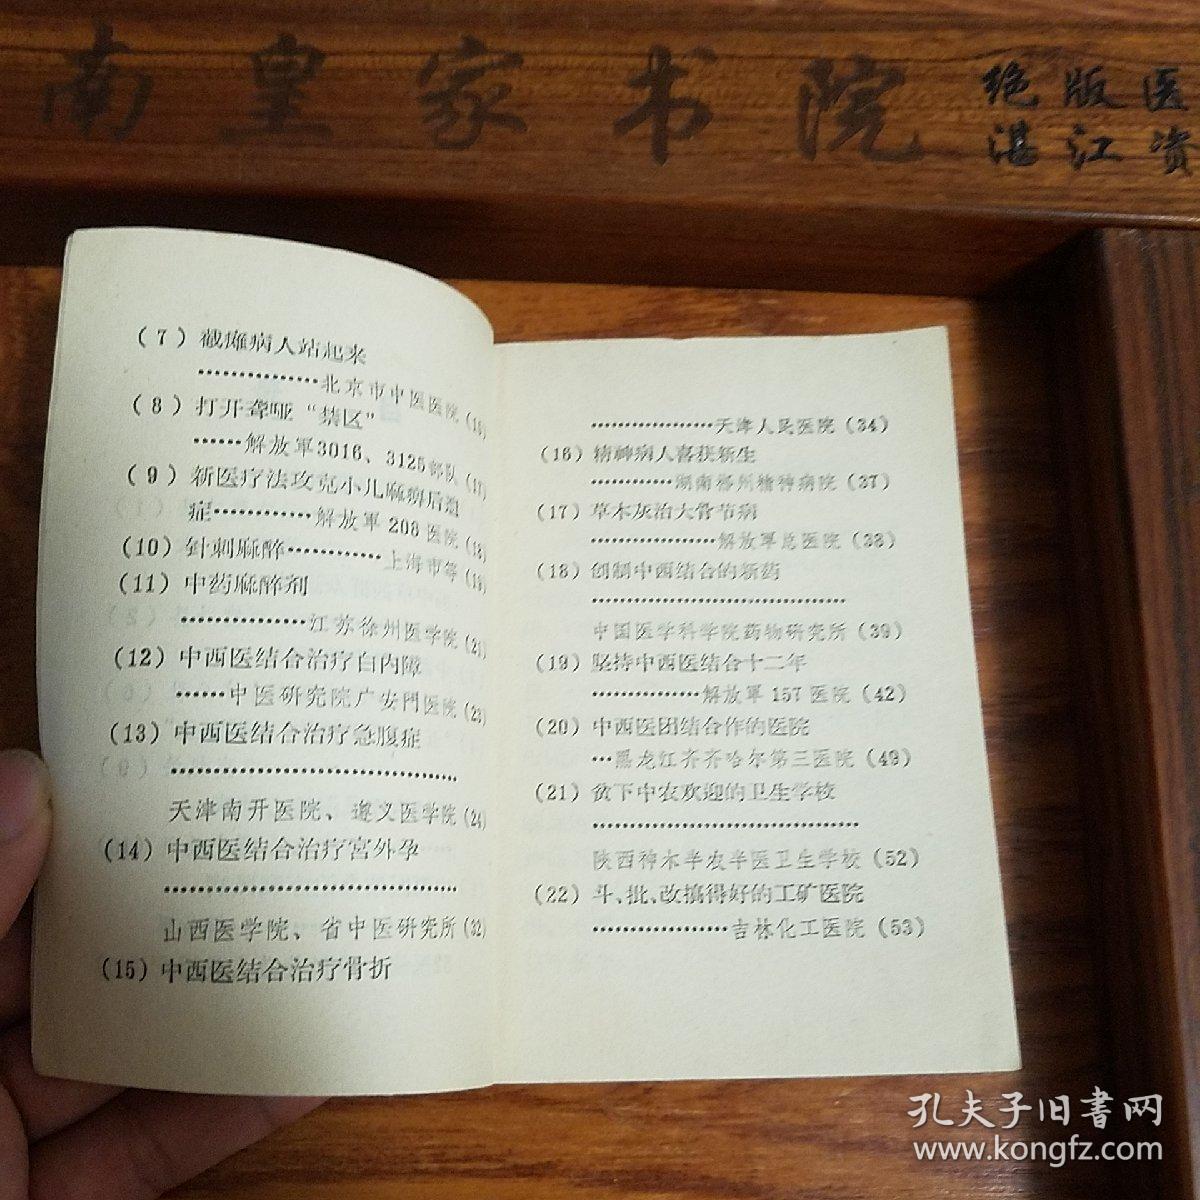 南皇家书院
绝版医
湛江资
(7) 截瘫病人站起来
……………北京市中医医院
(8) 打开聋哑“禁区”
……解放軍3016、3125部队(17)
(9) 新医疗法攻克小儿麻痹后遗
症…………解放軍208医院(18)
(10) 针刺麻醉…………上海市等
(11) 中药麻醉剂
……………江苏徐州医学院(21)
(12) 中西医结合治疗白内障
……中医研究院广安門医院(23)
(13) 中西医结合治疗急腹症
………………………………
天津南开医院、遵义医学院(24)
(14) 中西医结合治疗宫外孕
………………………………
山西医学院、省中医研究所(32)
(15) 中西医结合治疗骨折
………………天津人民医院(34)
(16) 精神病人喜获新生
…………湖南郴州精神病院(37)
(17) 草木灰治大骨节病
………………解放軍总医院(38)
(18) 创制中西结合的新药
………………………………
中国医学科学院药物研究所(39)
(19) 坚持中西医结合十二年
……………解放軍157医院(42)
(20) 中西医团结合作的医院
…黑龙江齐齐哈尔第三医院(49)
(21) 贫下中农欢迎的卫生学校
………………………………
陕西神木半农半医卫生学校(52)
(22) 斗、批、改搞得好的工矿医院
………………吉林化工医院(53)
孔夫子旧書网
www.kongfz.com